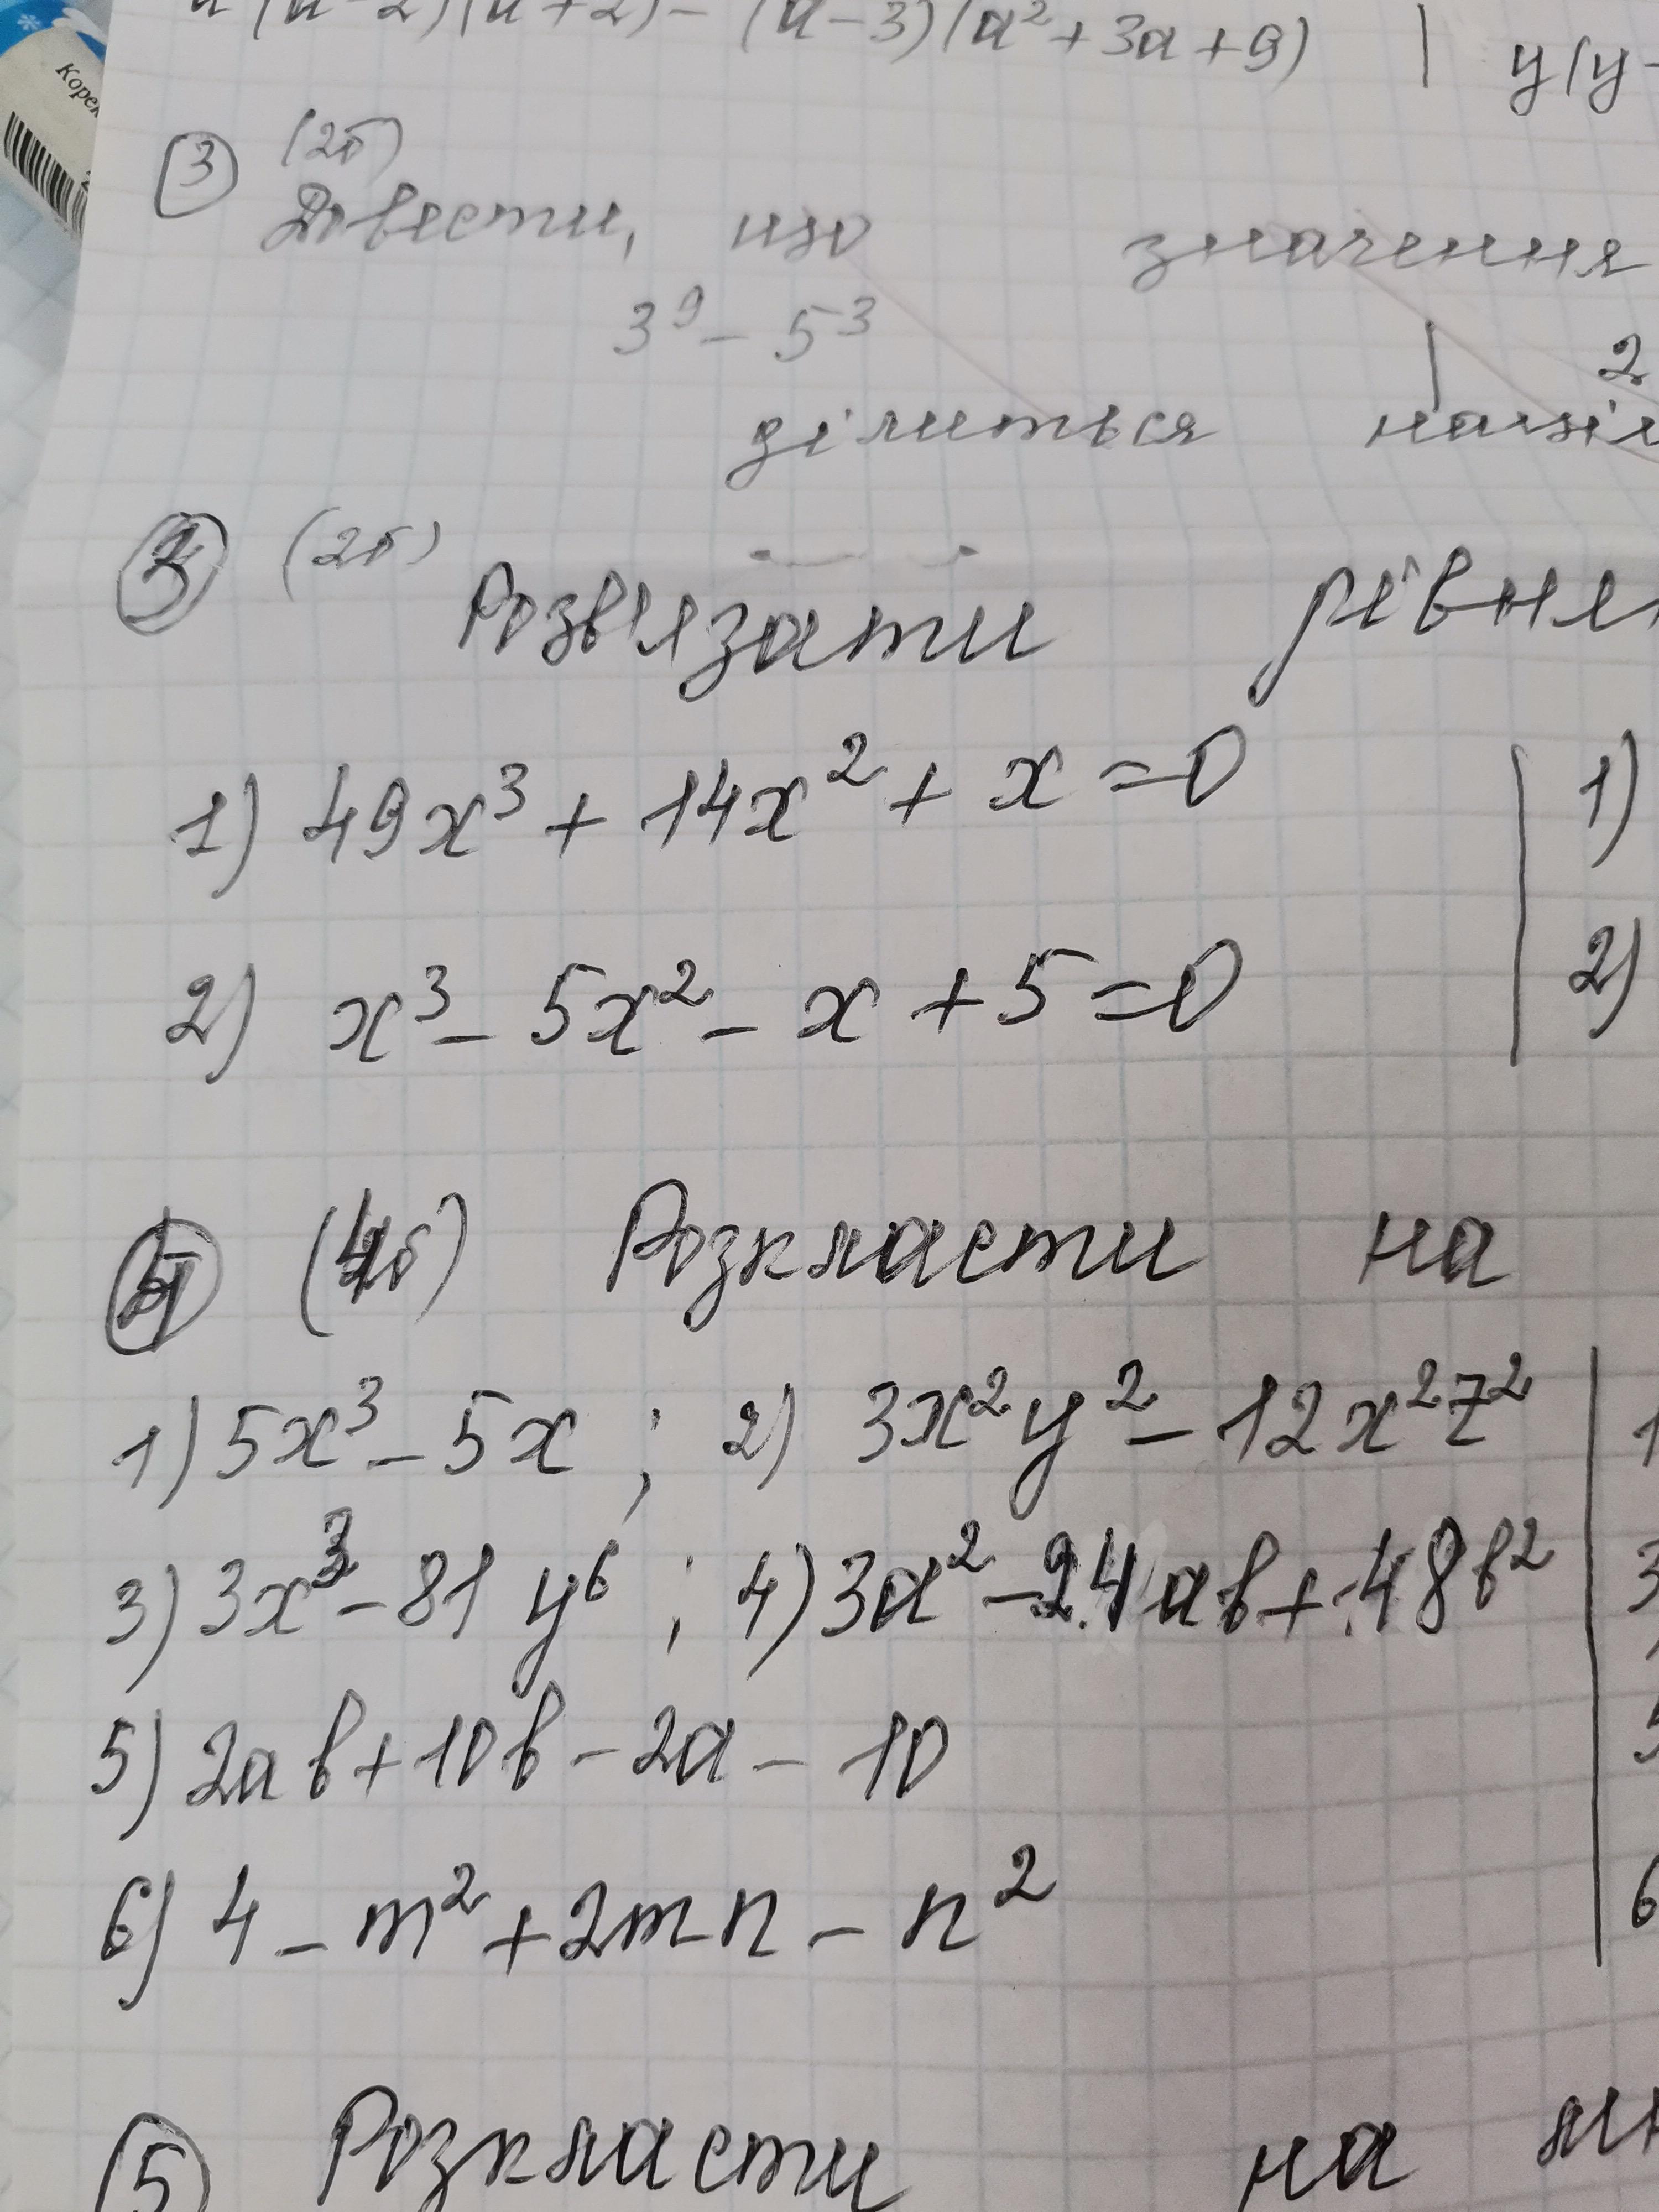 (a-2)(a+2) - (a-3)(a²+3a+9) | y(y-
Корен
3 (2б)
Довести, що значення
3⁹ - 5³ | 2
ділиться націл
3 (2б) Розв'язати рівнян
1) 49x³ + 14x² + x = 0 | 1)
2) x³ - 5x² - x + 5 = 0 | 2)
4 (4б) Розкласти на
1) 5x³ - 5x ; 2) 3x²y² - 12x²z² | 1
3) 3x³ - 81y⁶ ; 4) 3a² - 24ab + 48b² | 3
5) 2ab + 10b - 2a - 10 | 5
6) 4 - m² + 2mn - n² | 6
5 Розкласти на мн